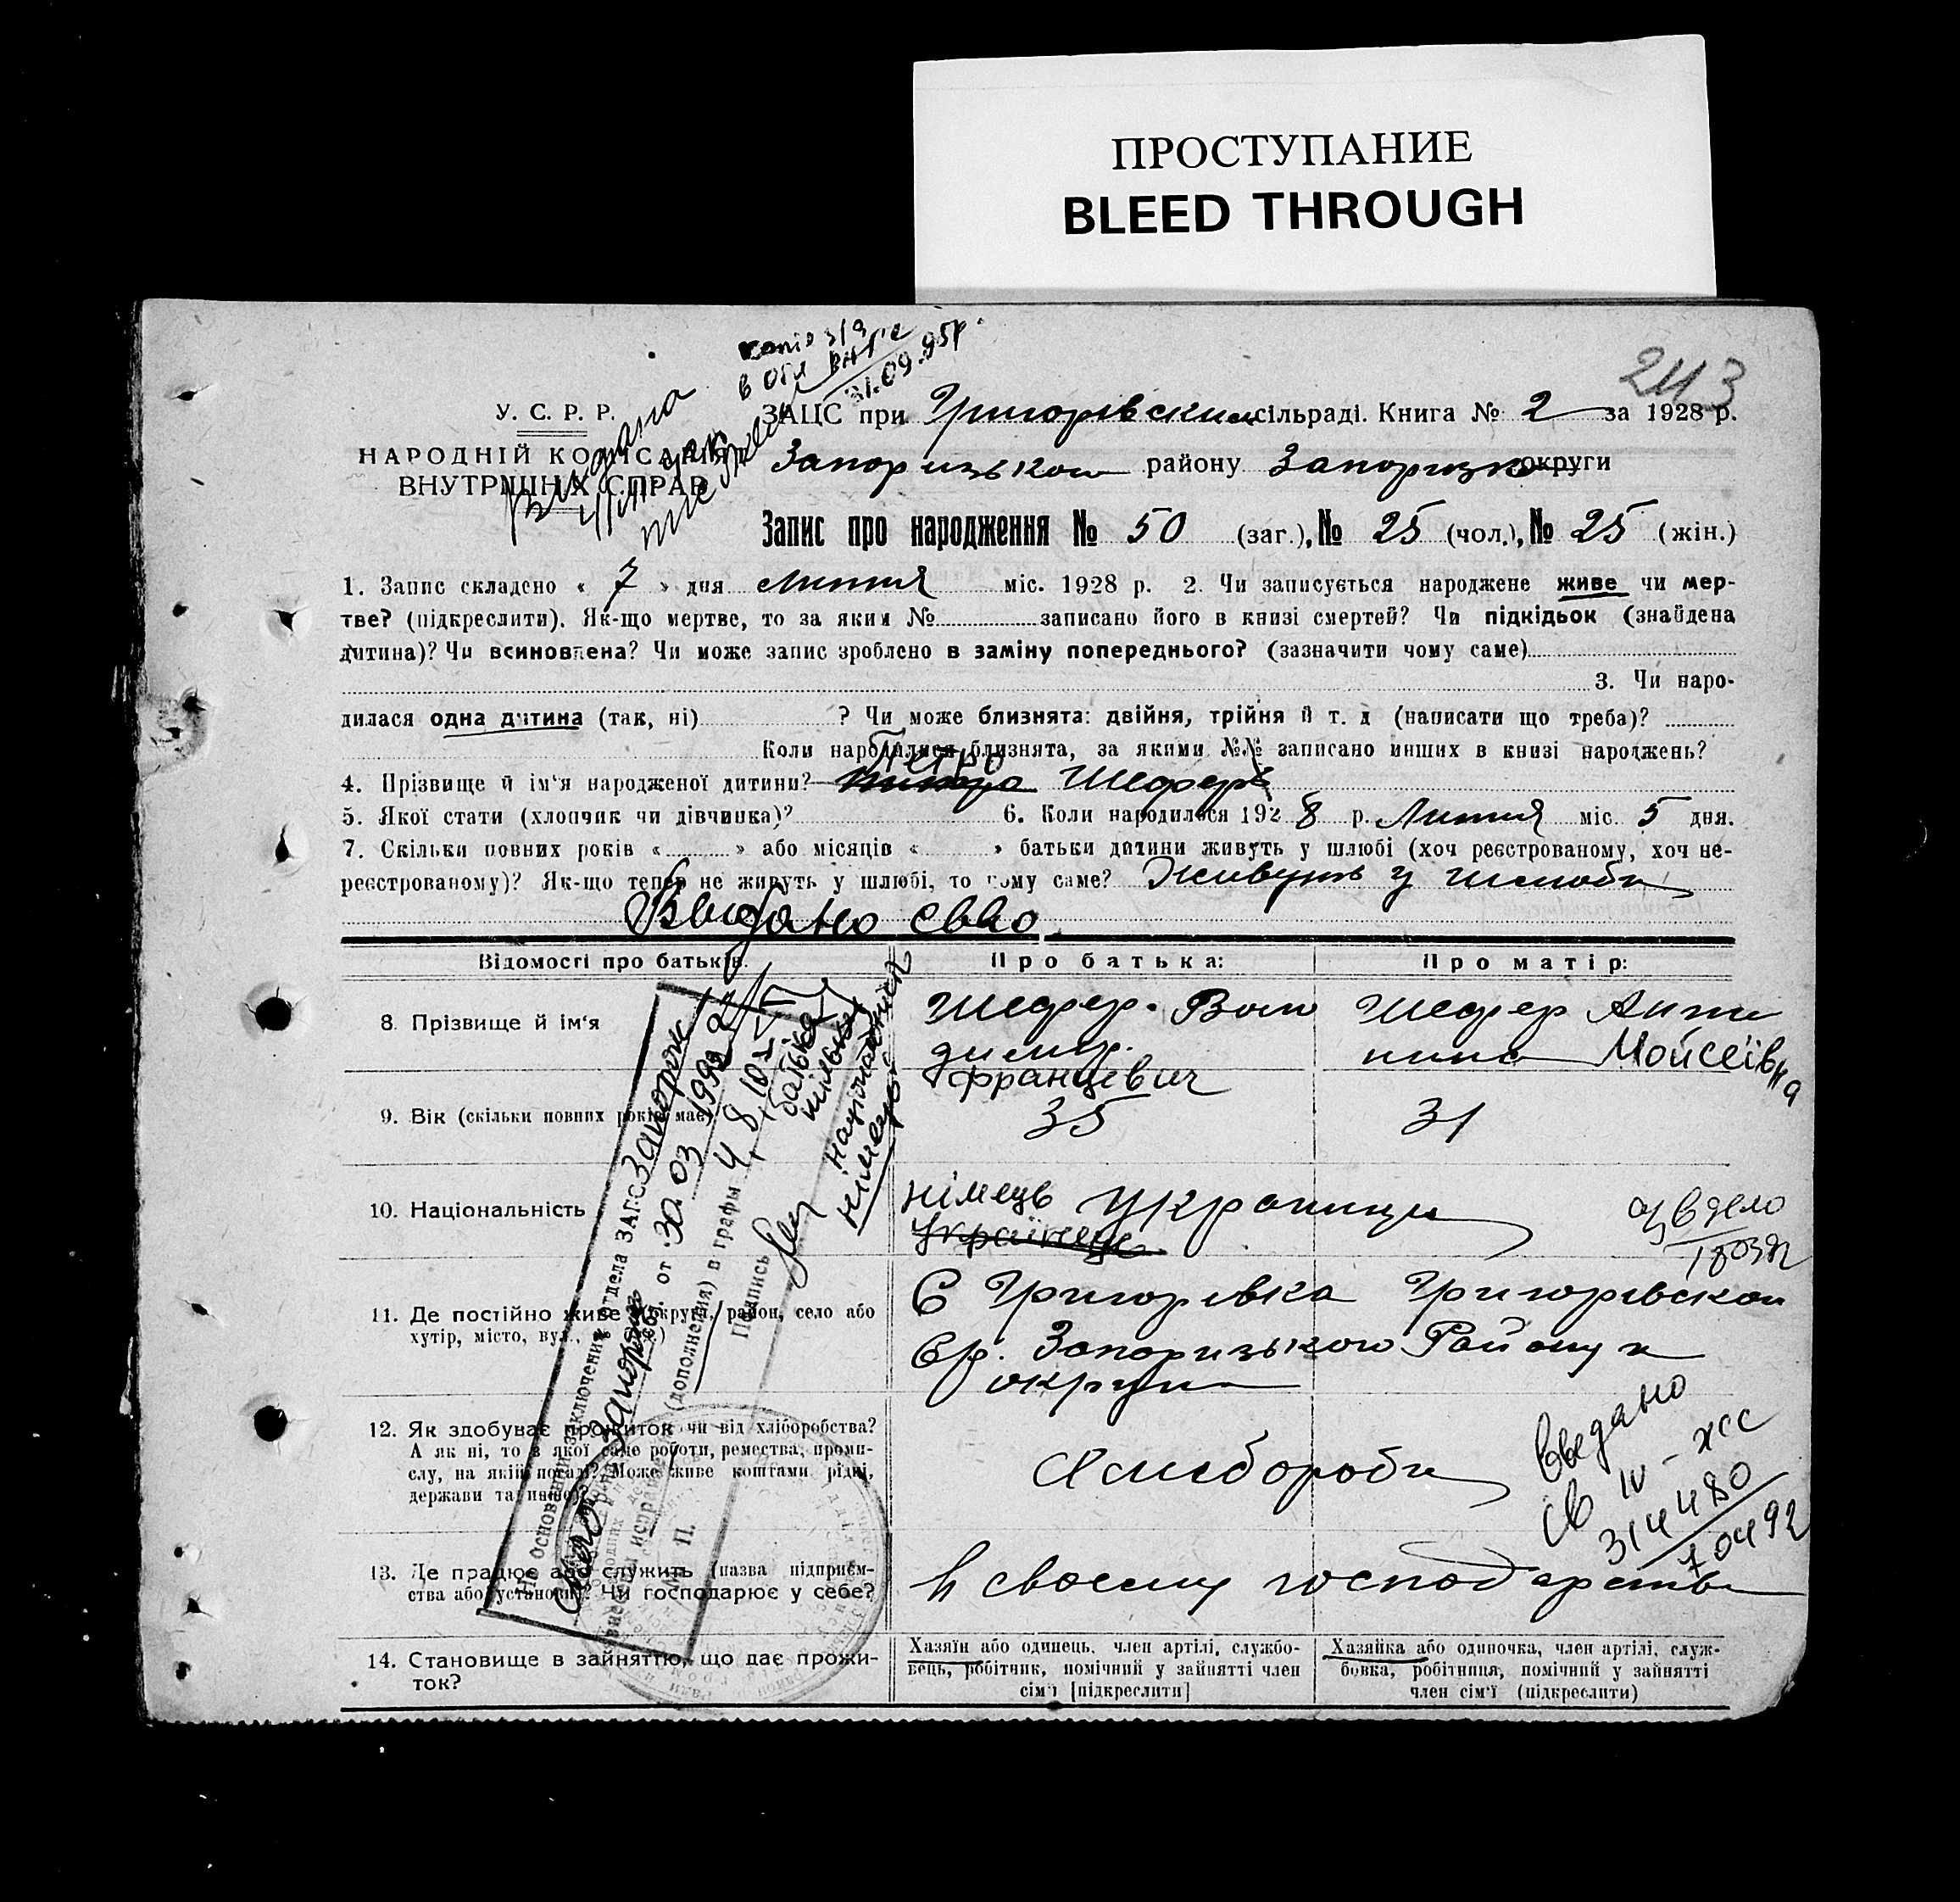 ПРОСТУПАНИЕ
BLEED THROUGH
243
копія з/а
в Обл
31.09.95р
У. С. Р. Р.
НАРОДНІЙ КОМІСАРІЯТ
ВНУТРІШНІХ СПРАВ
видана
ЗАЦС при Григорівским сільраді. Книга № 2 за 1928 р.
Запоризького району Запоризко округи
Запис про народження № 50 (заг.), № 25 (чол.), № 25 (жін.)
1. Запис складено « 7 » дня Липня міс. 1928 р. 2. Чи записується народжене живе чи мер-
тве? (підкреслити). Як-що мертве, то за яким № записано його в книзі смертей? Чи підкідьок (знайдена
дитина)? Чи всиновлена? Чи може запис зроблено в заміну попереднього? (зазначити чому саме)
3. Чи наро-
дилася одна дитина (так, ні) ? Чи може близнята: двійня, трійня й т. д (написати що треба)?
Коли народилися близнята, за якими №№ записано инших в книзі народжень?
Петро
4. Прізвище й ім'я народженої дитини? Шефер
5. Якої стати (хлопчик чи дівчинка)? 6. Коли народилося 1928 р. Липня міс. 5 дня.
7. Скільки повних років « » або місяців « » батьки дитини живуть у шлюбі (хоч реєстрованому, хоч не-
реєстрованому)? Як-що тепер не живуть у шлюбі, то чому саме? Живуть у шлюбі
Видано св-во
Відомості про батьків. Про батька: Про матір:
8. Прізвище й ім'я Шефер Воло Шефер Анто
димир. нина Мойсеївна
Францевич
9. Вік (скільки повних років має) 35 31
10. Національність німець Украинци
Українець
11. Де постійно живе (округа, район, село або
хутір, місто, вул., )
С Григорівка Григорівскои
С/р. Запоризького Району и
округи
12. Як здобуває прожиток чи від хліборобства?
А як ні, то з якої саме роботи, ремества, промис-
лу, на якій посаді? Може живе коштами рідні,
держави та инше?
Хлибороби
Введано
св IV-ЖС
314480
70492
13. Де працює або служить (назва підприєм-
ства або установи). Чи господарює у себе?
В своему господарстви
14. Становище в зайняттю, що дає прожи-
ток?
Хазяїн або одинець, член артілі, службо-
вець, робітник, помічний у зайнятті член
сім'ї [підкреслити]
Хазяйка або одиночка, член артілі, служ-
бовка, робітниця, помічний у зайнятті
член сім'ї (підкреслити)
На основании заключения отдела ЗАГС Запорож
Запорож обл. от 30 03 1992
внесены исправления (дополнения) в графы 4, 8, 10
Подпись
М. П.
батька
національність
німець